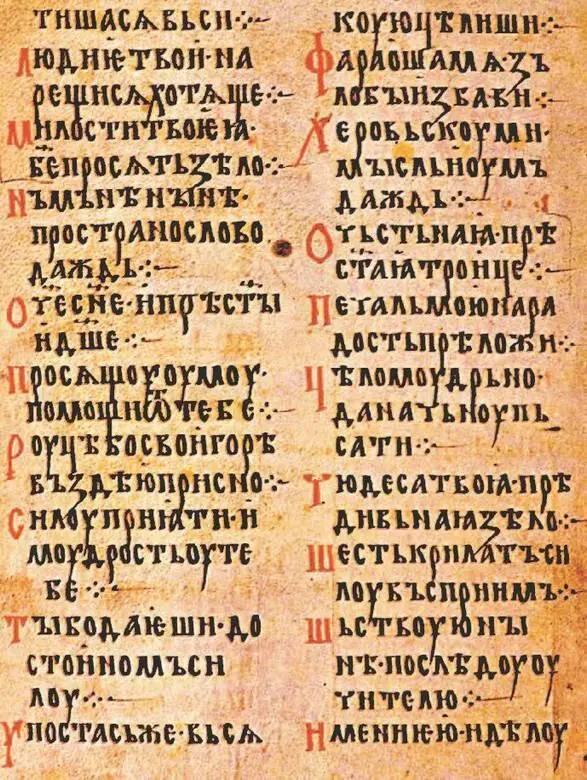 тишасѧ вьси·:·
людиѥ твои·на
рещи сѧ хотѧще·:·
милости твоѥꙗ·
бе просѧть зѣло·:·
нъ мънѣ нынѣ·
пространо слово
даждь·:·
оч҃е сн҃е·и прѣст҃ы
и дш҃е·:·
просѧщоуоумоу·
помощи ѿ тебе·:·
роуцѣ бо свои горѣ
въздѣю присно·:·
силоу приꙗти·и
моудрость оу те
бе·:·
ты бо даѥши·до
стоиномъ си
лоу·:·
ѵпостась же·вьсѧ
коую цѣлиши·:·
фараоша мѧ·зъ
лобы избави·:·
херовьскоу ми·
мысль и оумъ
даждь·:·
о чьстьнаꙗ·прѣ
ст҃аꙗ троице·:·
печаль мою на ра
дость прѣложи·:·
цѣломоудрьно·
да начьноу пь
сати·:·
чюдеса твоꙗ·прѣ
дивьнаꙗ зѣло·:·
шесть крилатъ си
лоу въсприимъ·:·
шьствоую ны
нѣ·по слѣдоу оу
чителю·:·
имении ю·и дѣлоу